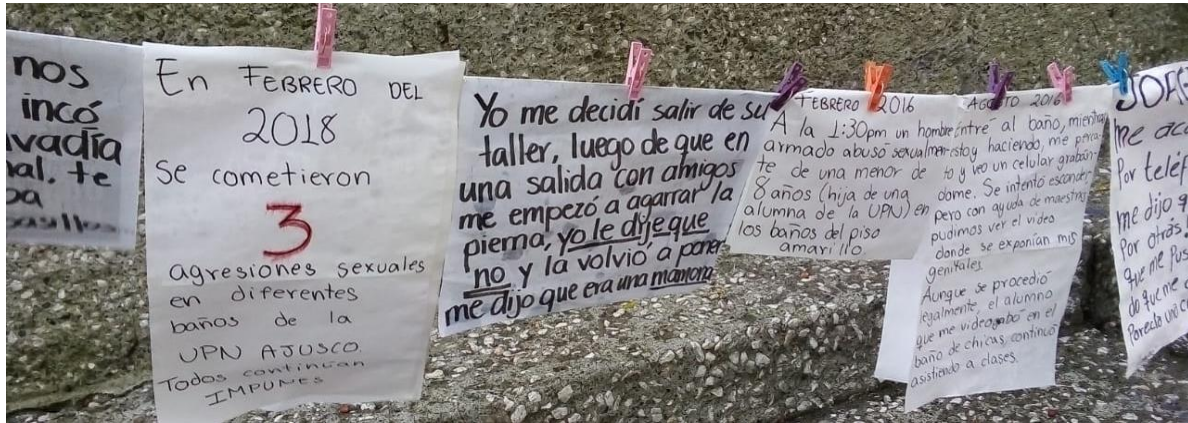 nos
incó
vadía
al. te
En FEBRERO DEL
2018
Se cometieron
3
agresiones sexuales
en diferentes
baños de la
UPN AJUSCO.
Todos continuan
IMPUNES
Yo me decidí salir de su
taller, luego de que en
una salida con amigos
me empezó a agarrar la
pierna, yo le dije que
no y la volvió a poner
me dijo que era una mamona
FEBRERO 2016
A la 1:30pm un hombre
armado abusó sexualmen-
te de una menor de
8 años (hija de una
alumna de la UPN) en
los baños del piso
amarillo.
AGOSTO 2016
entré al baño, mientras
estoy haciendo, me perca-
to y veo un celular grabán-
dome. Se intentó esconder
pero con ayuda de maestros
pudimos ver el video
donde se exponían mis
genitales
Aunque se procedió
legalmente, el alumno
que me videograbó en el
baño de chicas, continuó
asistiendo a clases.
me
Por teléf
me dijo q
Por otrás
que me Pus
do que me
Parecía una c